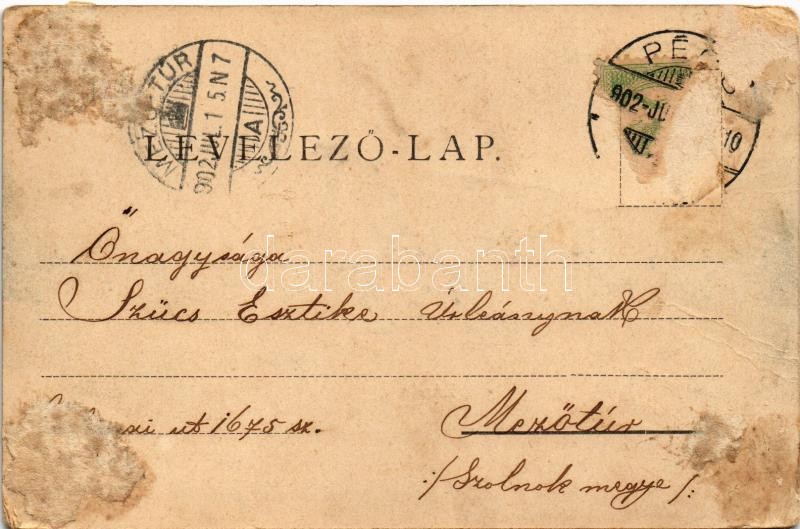 MEZŐTÚR
902 JUL. 1 5.N 7
A
PÉ
902-JU
10
LEVELEZŐ-LAP.
Őnagysága
darabanth
Szücs Esztike Úrleánynak
ut 1675 sz.
Mezőtúr
:/Szolnok megye/: